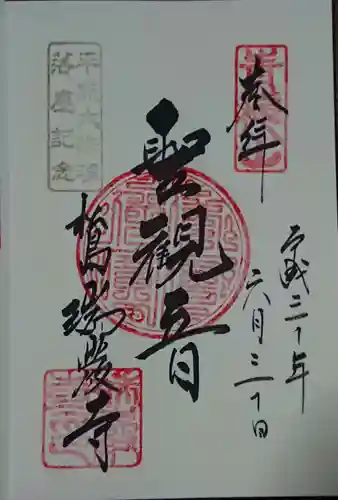 奉拝
平成三十年
六月三十日
聖觀音
松島瑞巌寺
平成大修理
落慶記念